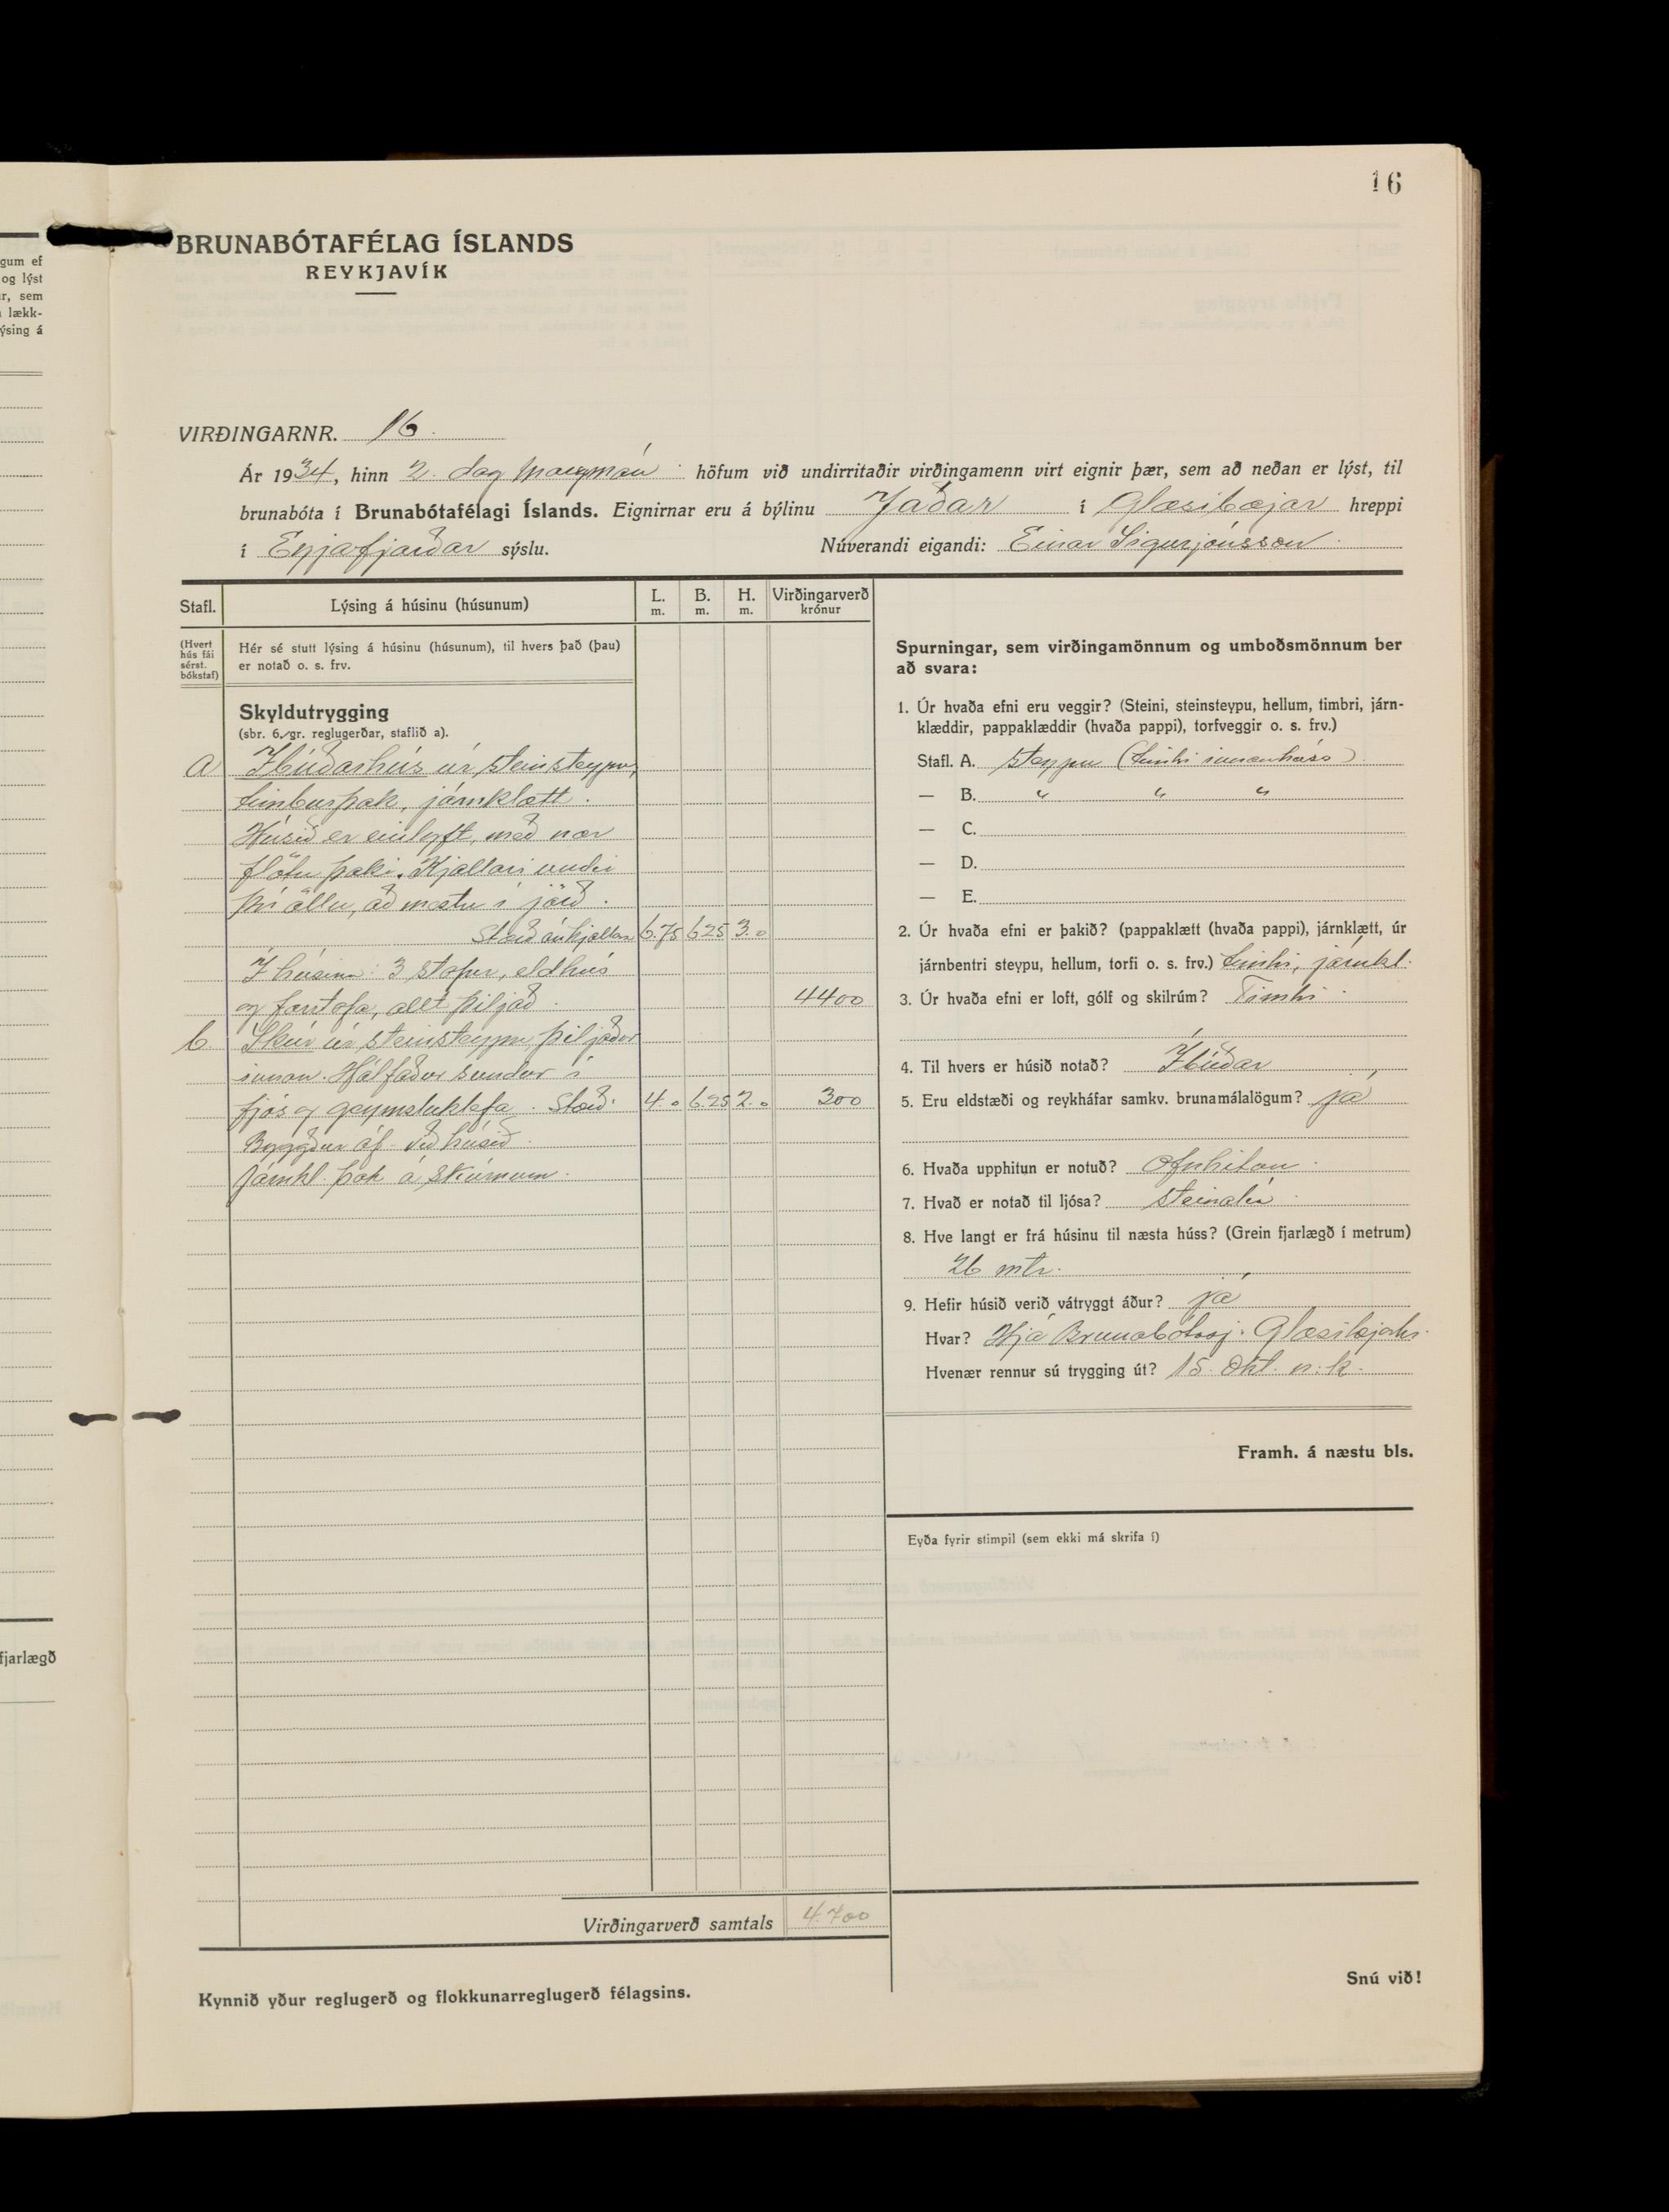 16
BRUNABÓTAFÉLAG ÍSLANDS
REYKJAVÍK
gum ef
og lýst
r, sem
lækk-
ýsing á
VIRÐINGARNR. 16.
Ár 1934, hinn 2. dag höfum við undirritaðir virðingamenn virt eignir þær, sem að neðan er lýst, til
brunabóta í Brunabótafélagi Íslands. Eignirnar eru á býlinu Jaðar í Glæsibæjar hreppi
í Eyjafjarðar sýslu. Núverandi eigandi: Einar Sigurjónsson
Stafl. Lýsing á húsinu (húsunum) L. m. B. m. H. m. Virðingarverð krónur
(Hvert hús fái sérst. bókstaf)
Hér sé stutt lýsing á húsinu (húsunum), til hvers það (þau)
er notað o. s. frv.
Skyldutrygging
(sbr. 6. gr. reglugerðar, staflið a).
a Íbúðarhús úr steinsteypu,
timburþak, járnklætt.
Húsið er einlyft, með nær
flötu þaki. Kjallari undir
því öllu, að mestu í jörð.
Stærð án kjallara 6.75 6.25 3.0
Í húsinu: 3 stofur, eldhús
og forstofa, allt þiljað. 4400
b. Skúr úr steinsteypu þiljaður
innan. Hálfaður sundur í
fjós og geymsluklefa. Stærð: 4.0 6.25 2.0 300
Byggður áf. við húsið.
Járnkl. þak á skúrnum.
Virðingarverð samtals 4.700
Kynnið yður reglugerð og flokkunarreglugerð félagsins.
Spurningar, sem virðingamönnum og umboðsmönnum ber
að svara:
1. Úr hvaða efni eru veggir? (Steini, steinsteypu, hellum, timbri, járn-
klæddir, pappaklæddir (hvaða pappi), torfveggir o. s. frv.)
Stafl. A. steypu (timbri innanhúss)
— B. " " "
— C.
— D.
— E.
2. Úr hvaða efni er þakið? (pappaklætt (hvaða pappi), járnklætt, úr
járnbentri steypu, hellum, torfi o. s. frv.) timbri, járnkl.
3. Úr hvaða efni er loft, gólf og skilrúm? Timbri.
4. Til hvers er húsið notað? Íbúðar
5. Eru eldstæði og reykháfar samkv. brunamálalögum? já
6. Hvaða upphitun er notuð? Ofnhitun.
7. Hvað er notað til ljósa? steinolía.
8. Hve langt er frá húsinu til næsta húss? (Grein fjarlægð í metrum)
26 mtr.
9. Hefir húsið verið vátryggt áður? já
Hvar? Hjá Brunabótasj. Glæsibæjarhr.
Hvenær rennur sú trygging út? 15. okt. n.k.
Framh. á næstu bls.
Eyða fyrir stimpil (sem ekki má skrifa í)
fjarlægð
Snú við!